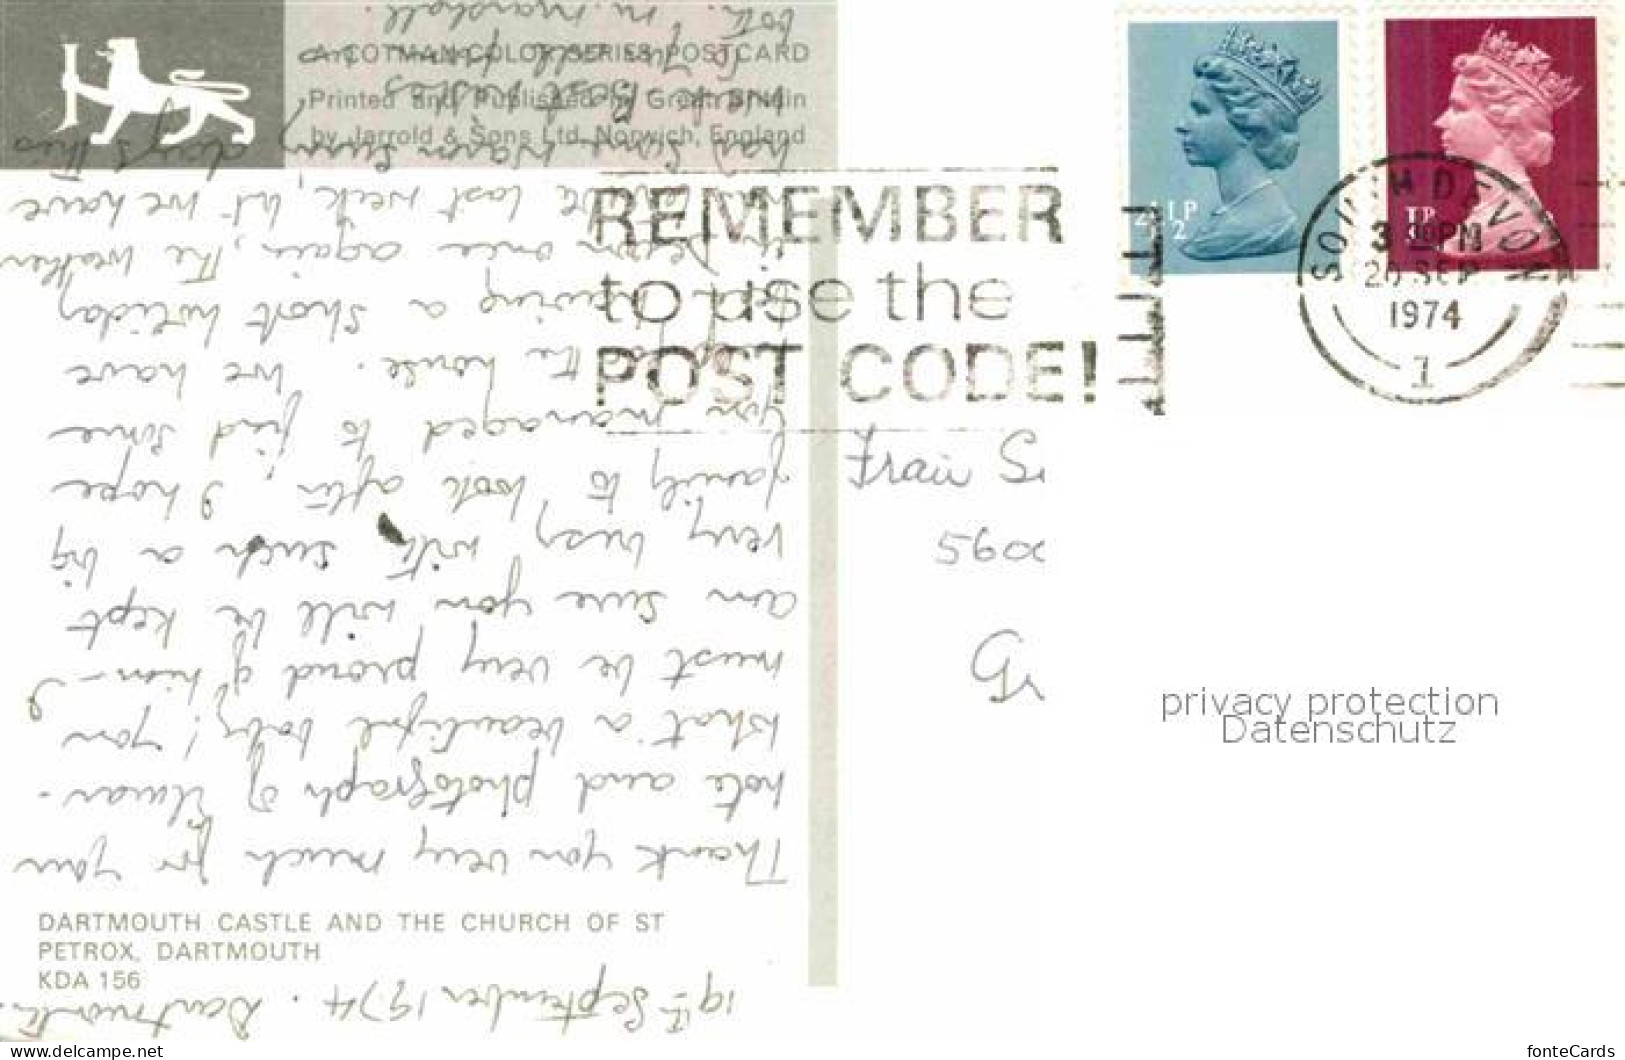 A COTMAN-COLOR SERIES POSTCARD
Printed and Published in Great Britain
by Jarrold & Sons Ltd, Norwich, England
REMEMBER
to use the
POST CODE!
2½P
1P
SOUTH DEVON
3 30PM
20 SEP
1974
1
Frau
560
privacy protection
Datenschutz
DARTMOUTH CASTLE AND THE CHURCH OF ST
PETROX, DARTMOUTH
KDA 156
19th September 1974. Dartmouth.
Thank you very much for your
note and photograph of -
What a beautiful baby! you
must be very proud of him - I
am sure you will be kept
very busy with such a big
family to look after, I hope
you managed to find some
the house. We have
having a short holiday
in Devon once again, the weather
last week, but we have
had some warm sunny days this
week. Best wishes
to you all from us
both. M. Marshall.
www.delcampe.net
fonteCards